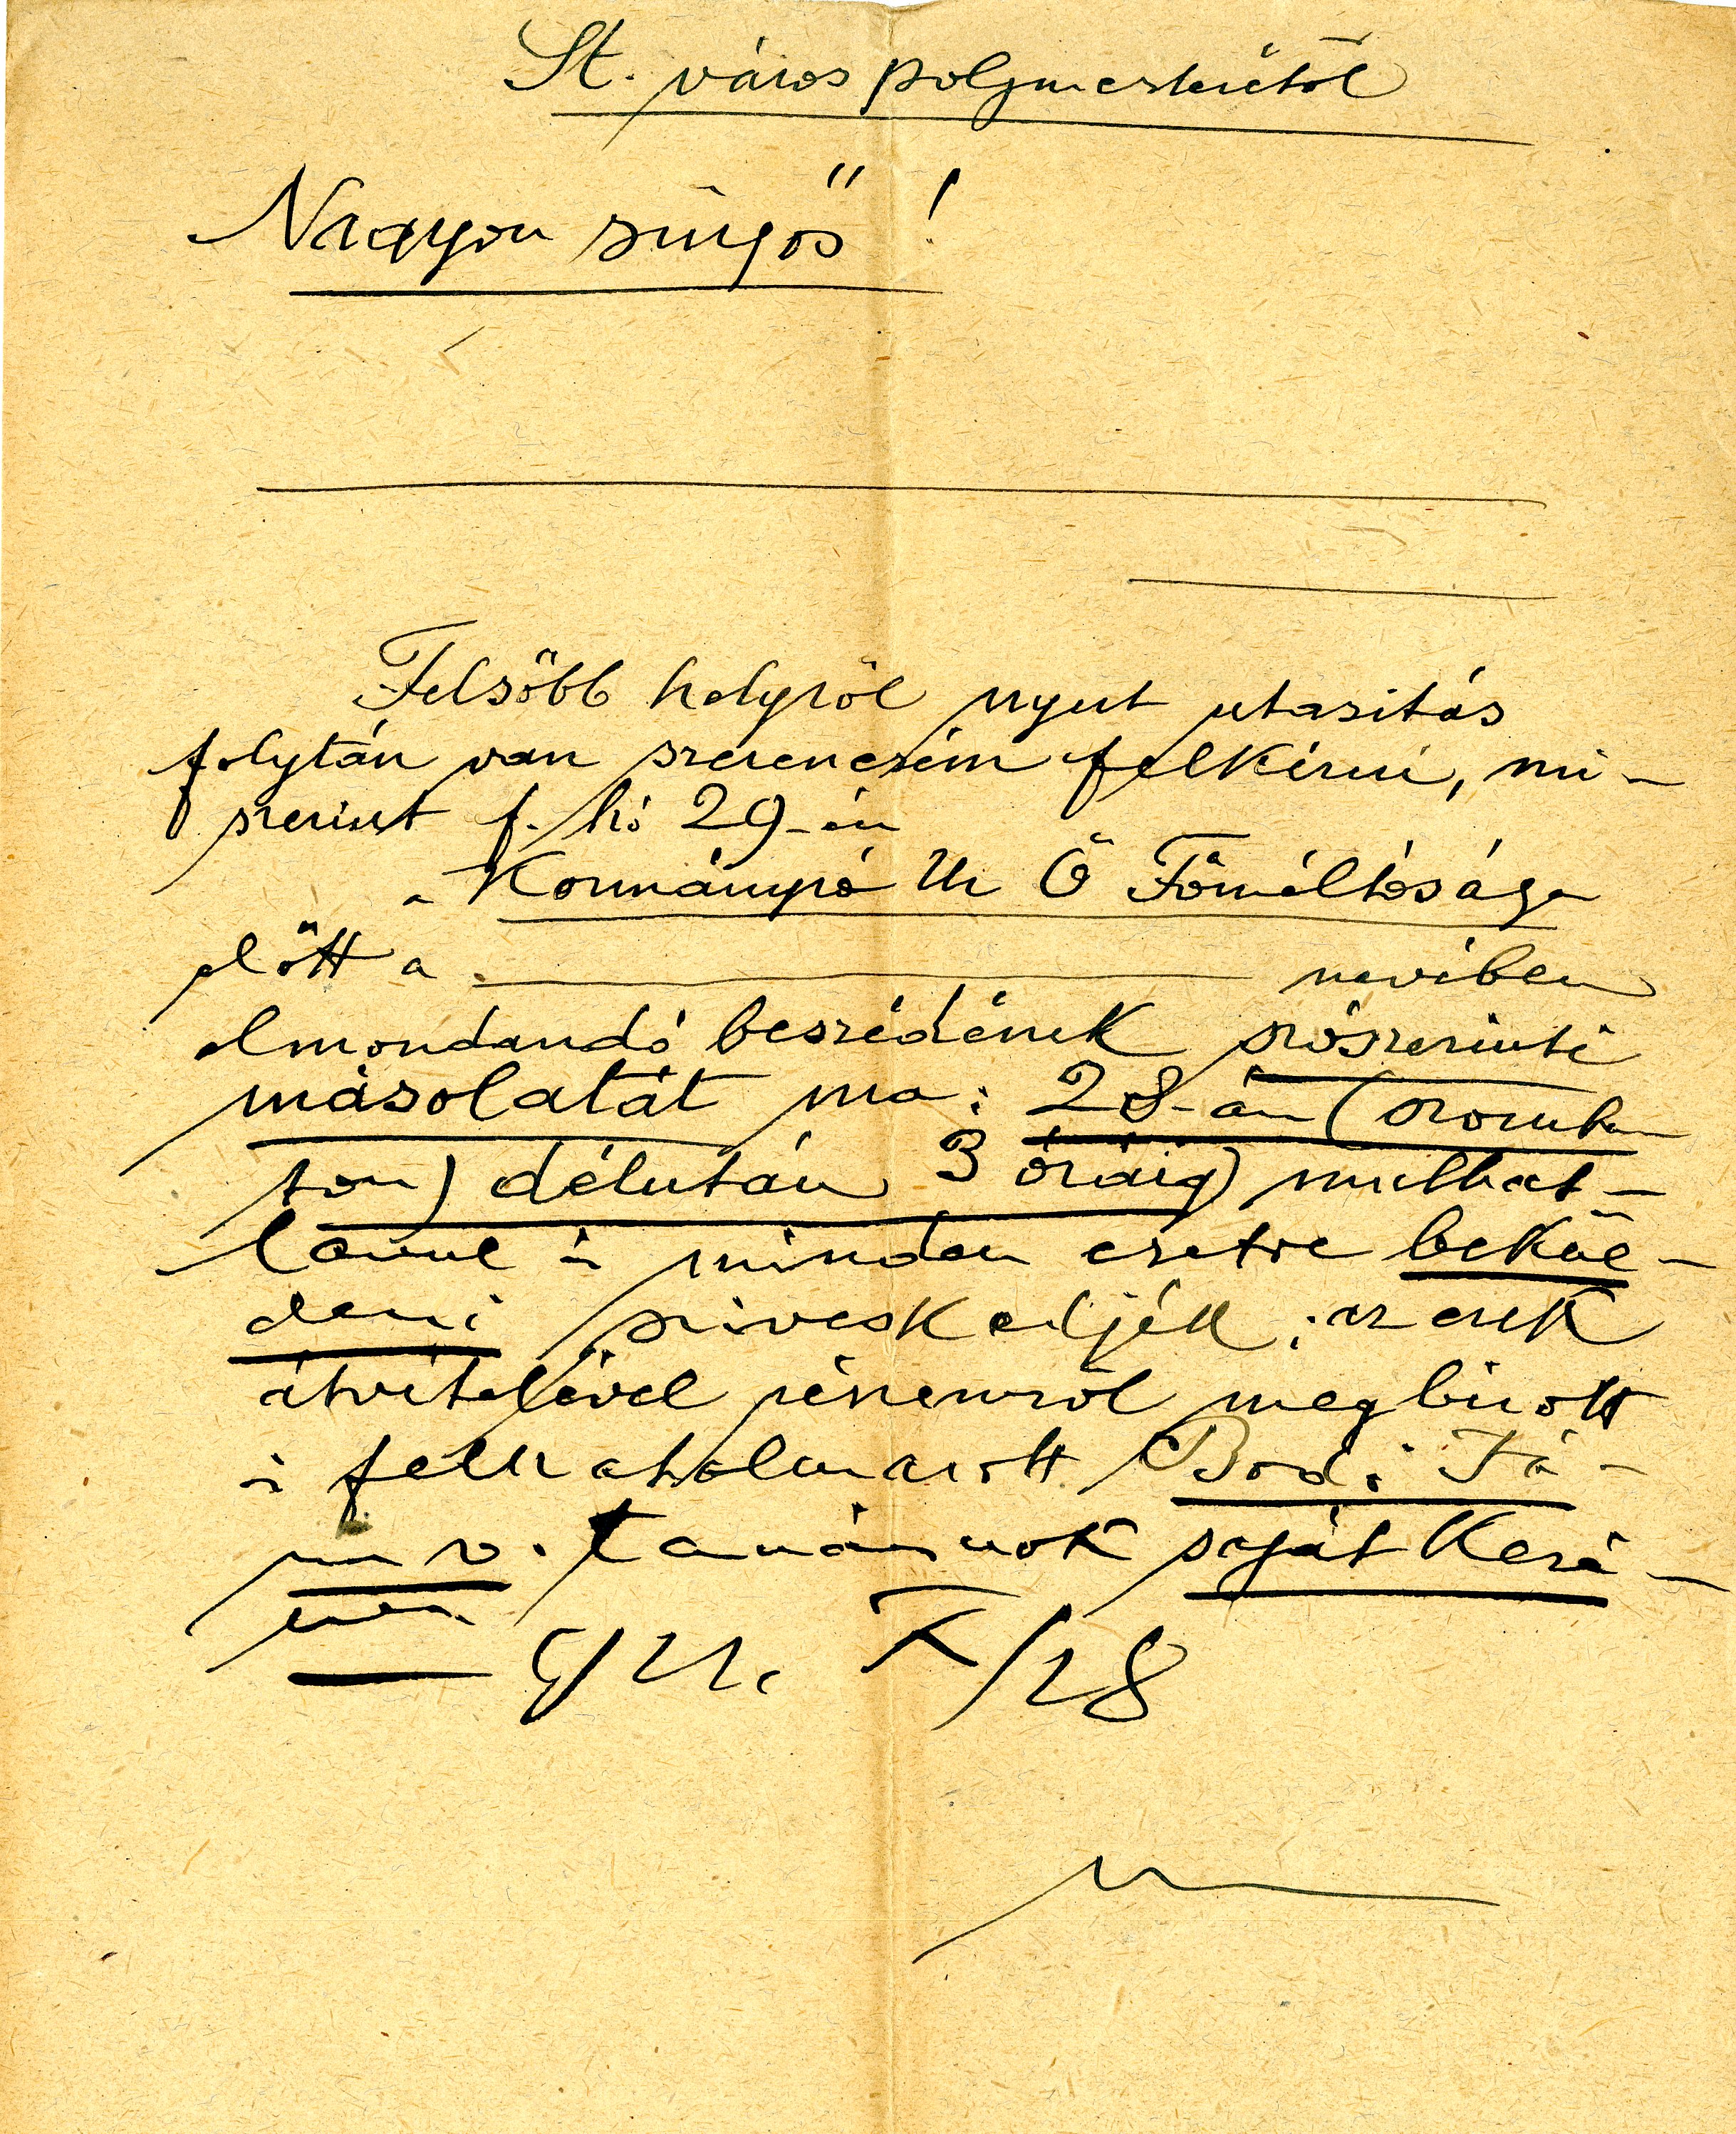 St. város polgmesterétől
Nagyon sürgős!
Felsőbb helyről nyert utasitás
folytán van szerencsém felkérni, mi-
szerint f. hó 29-én
a Kormányzó Ur Ő Főméltósága
előtt a nevében
elmondandó beszédének szószerinti
másolatát ma: 28-án (szomba
ton) délután 3 óráig) mulhat-
lanul s minden esetre bekül-
deni sziveskedjék; ezesek
átvételével részemről megbizott
s felhatalmazott Bodi Já-
nos v. tanácsnok saját kezé-
hez.
Gy. X/28